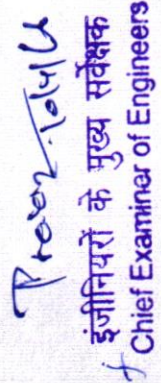 इंजीनियरों के मुख्य सर्वेक्षक
Chief Examiner of Engineers